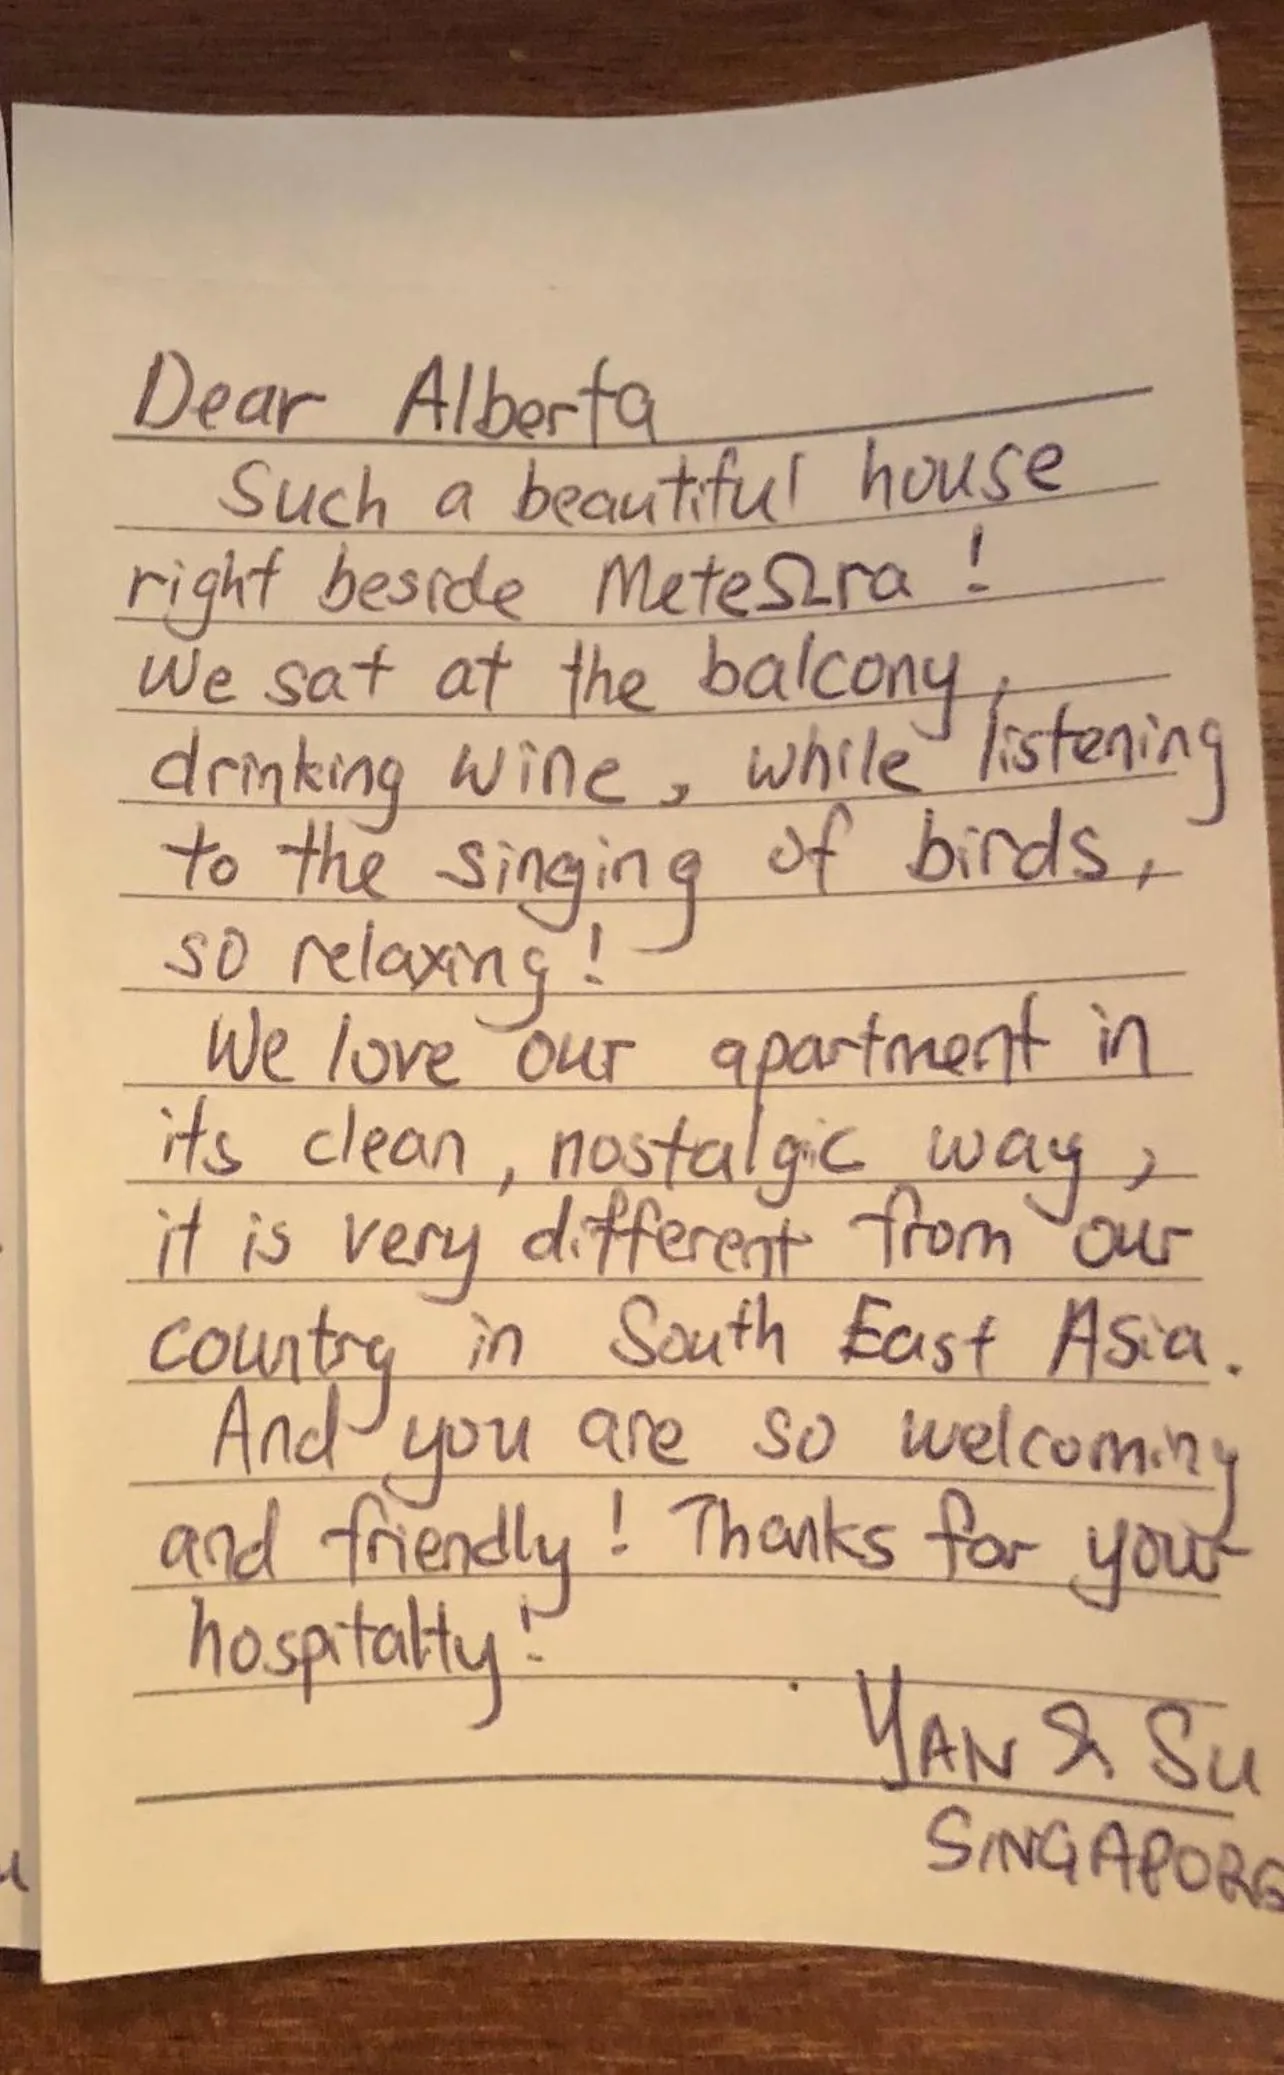 Dear Alberta
Such a beautiful house
right beside MeteΩra !
We sat at the balcony,
drinking wine, while listening
to the singing of birds,
so relaxing!
We love our apartment in
its clean, nostalgic way,
it is very different from our
country in South East Asia.
And you are so welcoming
and friendly! Thanks for your
hospitalty!
YAN & SU
SINGAPORE